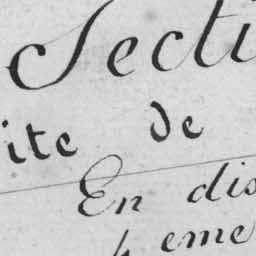 Secti
ite de
En dis
eme